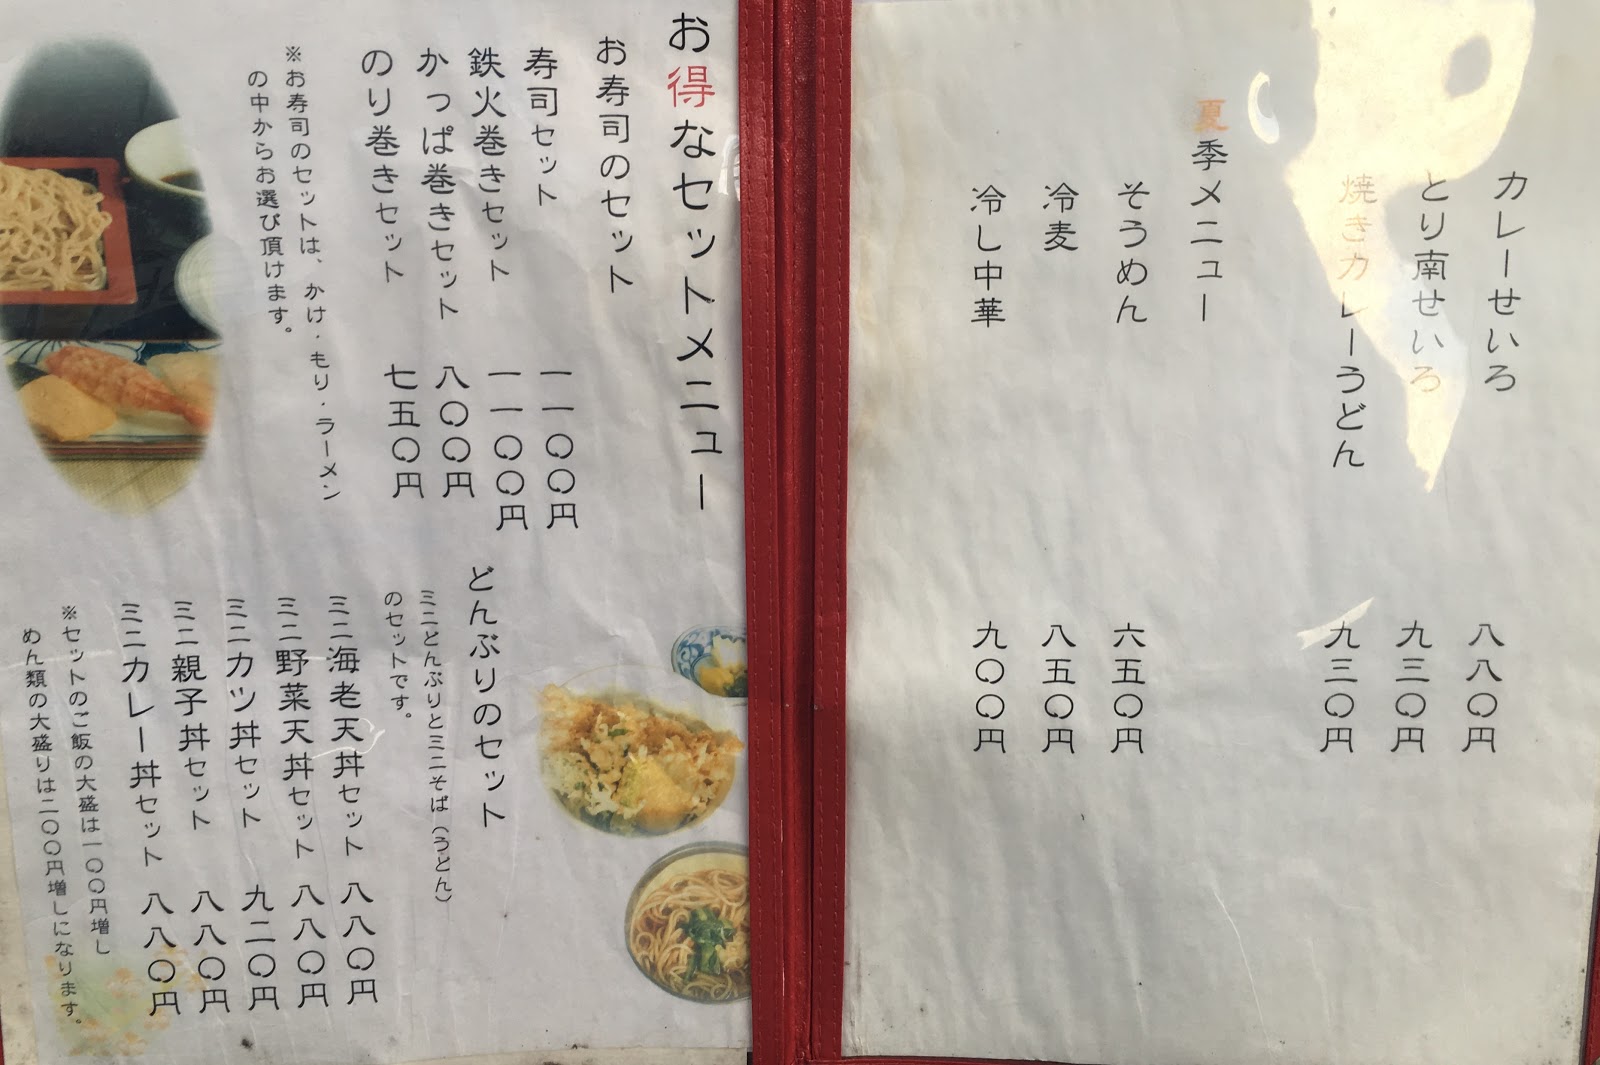 カレーせいろ 八八〇円
とり南せいろ 九三〇円
焼きカレーうどん 九三〇円
夏季メニュー
そうめん 六五〇円
冷麦 八五〇円
冷し中華 九〇〇円
お得なセットメニュー
お寿司のセット
寿司セット 一一〇〇円
鉄火巻きセット 一一〇〇円
かっぱ巻きセット 八〇〇円
のり巻きセット 七五〇円
※お寿司のセットは、かけ・もり・ラーメン
の中からお選び頂けます。
どんぶりのセット
ミニどんぶりとミニそば(うどん)
のセットです。
ミニ海老天丼セット 八八〇円
ミニ野菜天丼セット 八八〇円
ミニカツ丼セット 九二〇円
ミニ親子丼セット 八八〇円
ミニカレー丼セット 八八〇円
※セットのご飯の大盛は一〇〇円増し
めん類の大盛りは二〇〇円増しになります。